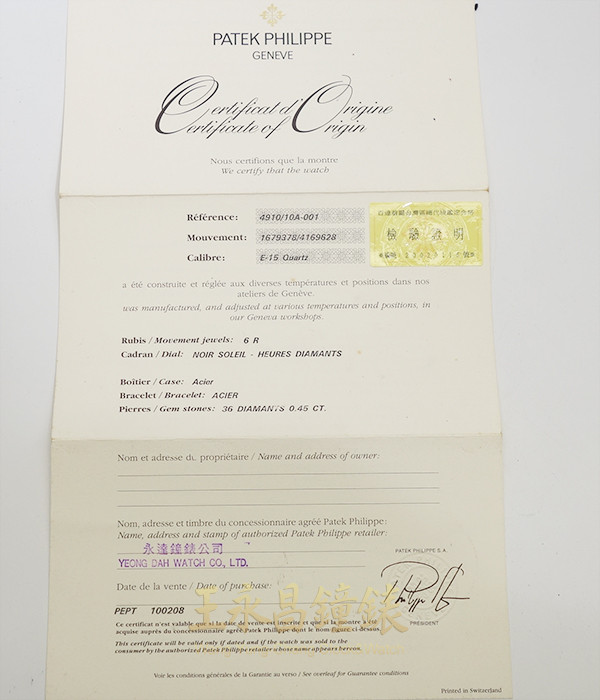 PATEK PHILIPPE
GENEVE
Certificat d'Origine
Certificate of Origin
Nous certifions que la montre
We certify that the watch
Référence: 4910/10A-001
Mouvement: 1679378/4169628
Calibre: E-15 Quartz
檢驗證明
a été construite et réglée aux diverses températures et positions dans nos
ateliers de Genève.
was manufactured, and adjusted at various temperatures and positions, in
our Geneva workshops.
Rubis / Movement jewels: 6 R
Cadran / Dial: NOIR SOLEIL - HEURES DIAMANTS
Boîtier / Case: Acier
Bracelet / Bracelet: ACIER
Pierres / Gem stones: 36 DIAMANTS 0.45 CT.
Nom et adresse du propriétaire / Name and address of owner:
Nom, adresse et timbre du concessionnaire agréé Patek Philippe:
Name, address and stamp of authorized Patek Philippe retailer:
永達鐘錶公司
YEONG DAH WATCH CO., LTD.
PATEK PHILIPPE S.A.
Date de la vente / Date of purchase:
PEPT 100208
王永昌鐘錶
PRESIDENT
Ce certificat n'est valable que si la date de vente est inscrite et que si la montre a été
acquise auprès du concessionnaire agréé Patek Philippe dont le nom figure ci-dessus.
This certificate will be valid only if dated and if the watch was sold to the
consumer by the authorized Patek Philippe retailer whose name appears hereon.
Voir les conditions générales de la Garantie au verso / See overleaf for Guarantee conditions
Printed in Switzerland